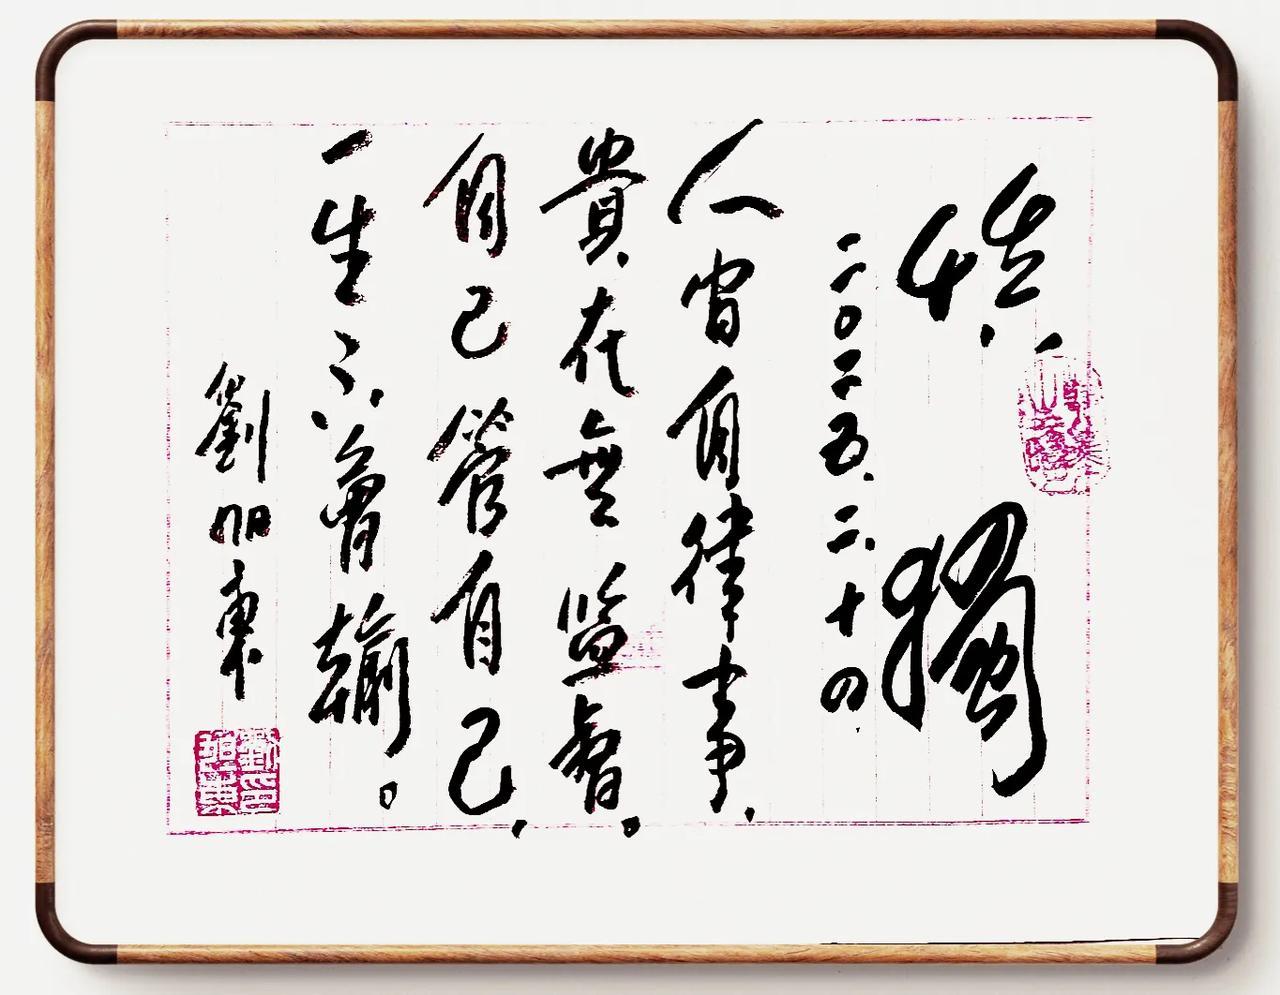 慎獨
二〇二五.二.十四.
人自律事,
貴在無监督。
自己管自己,
一生不會輸。
劉東